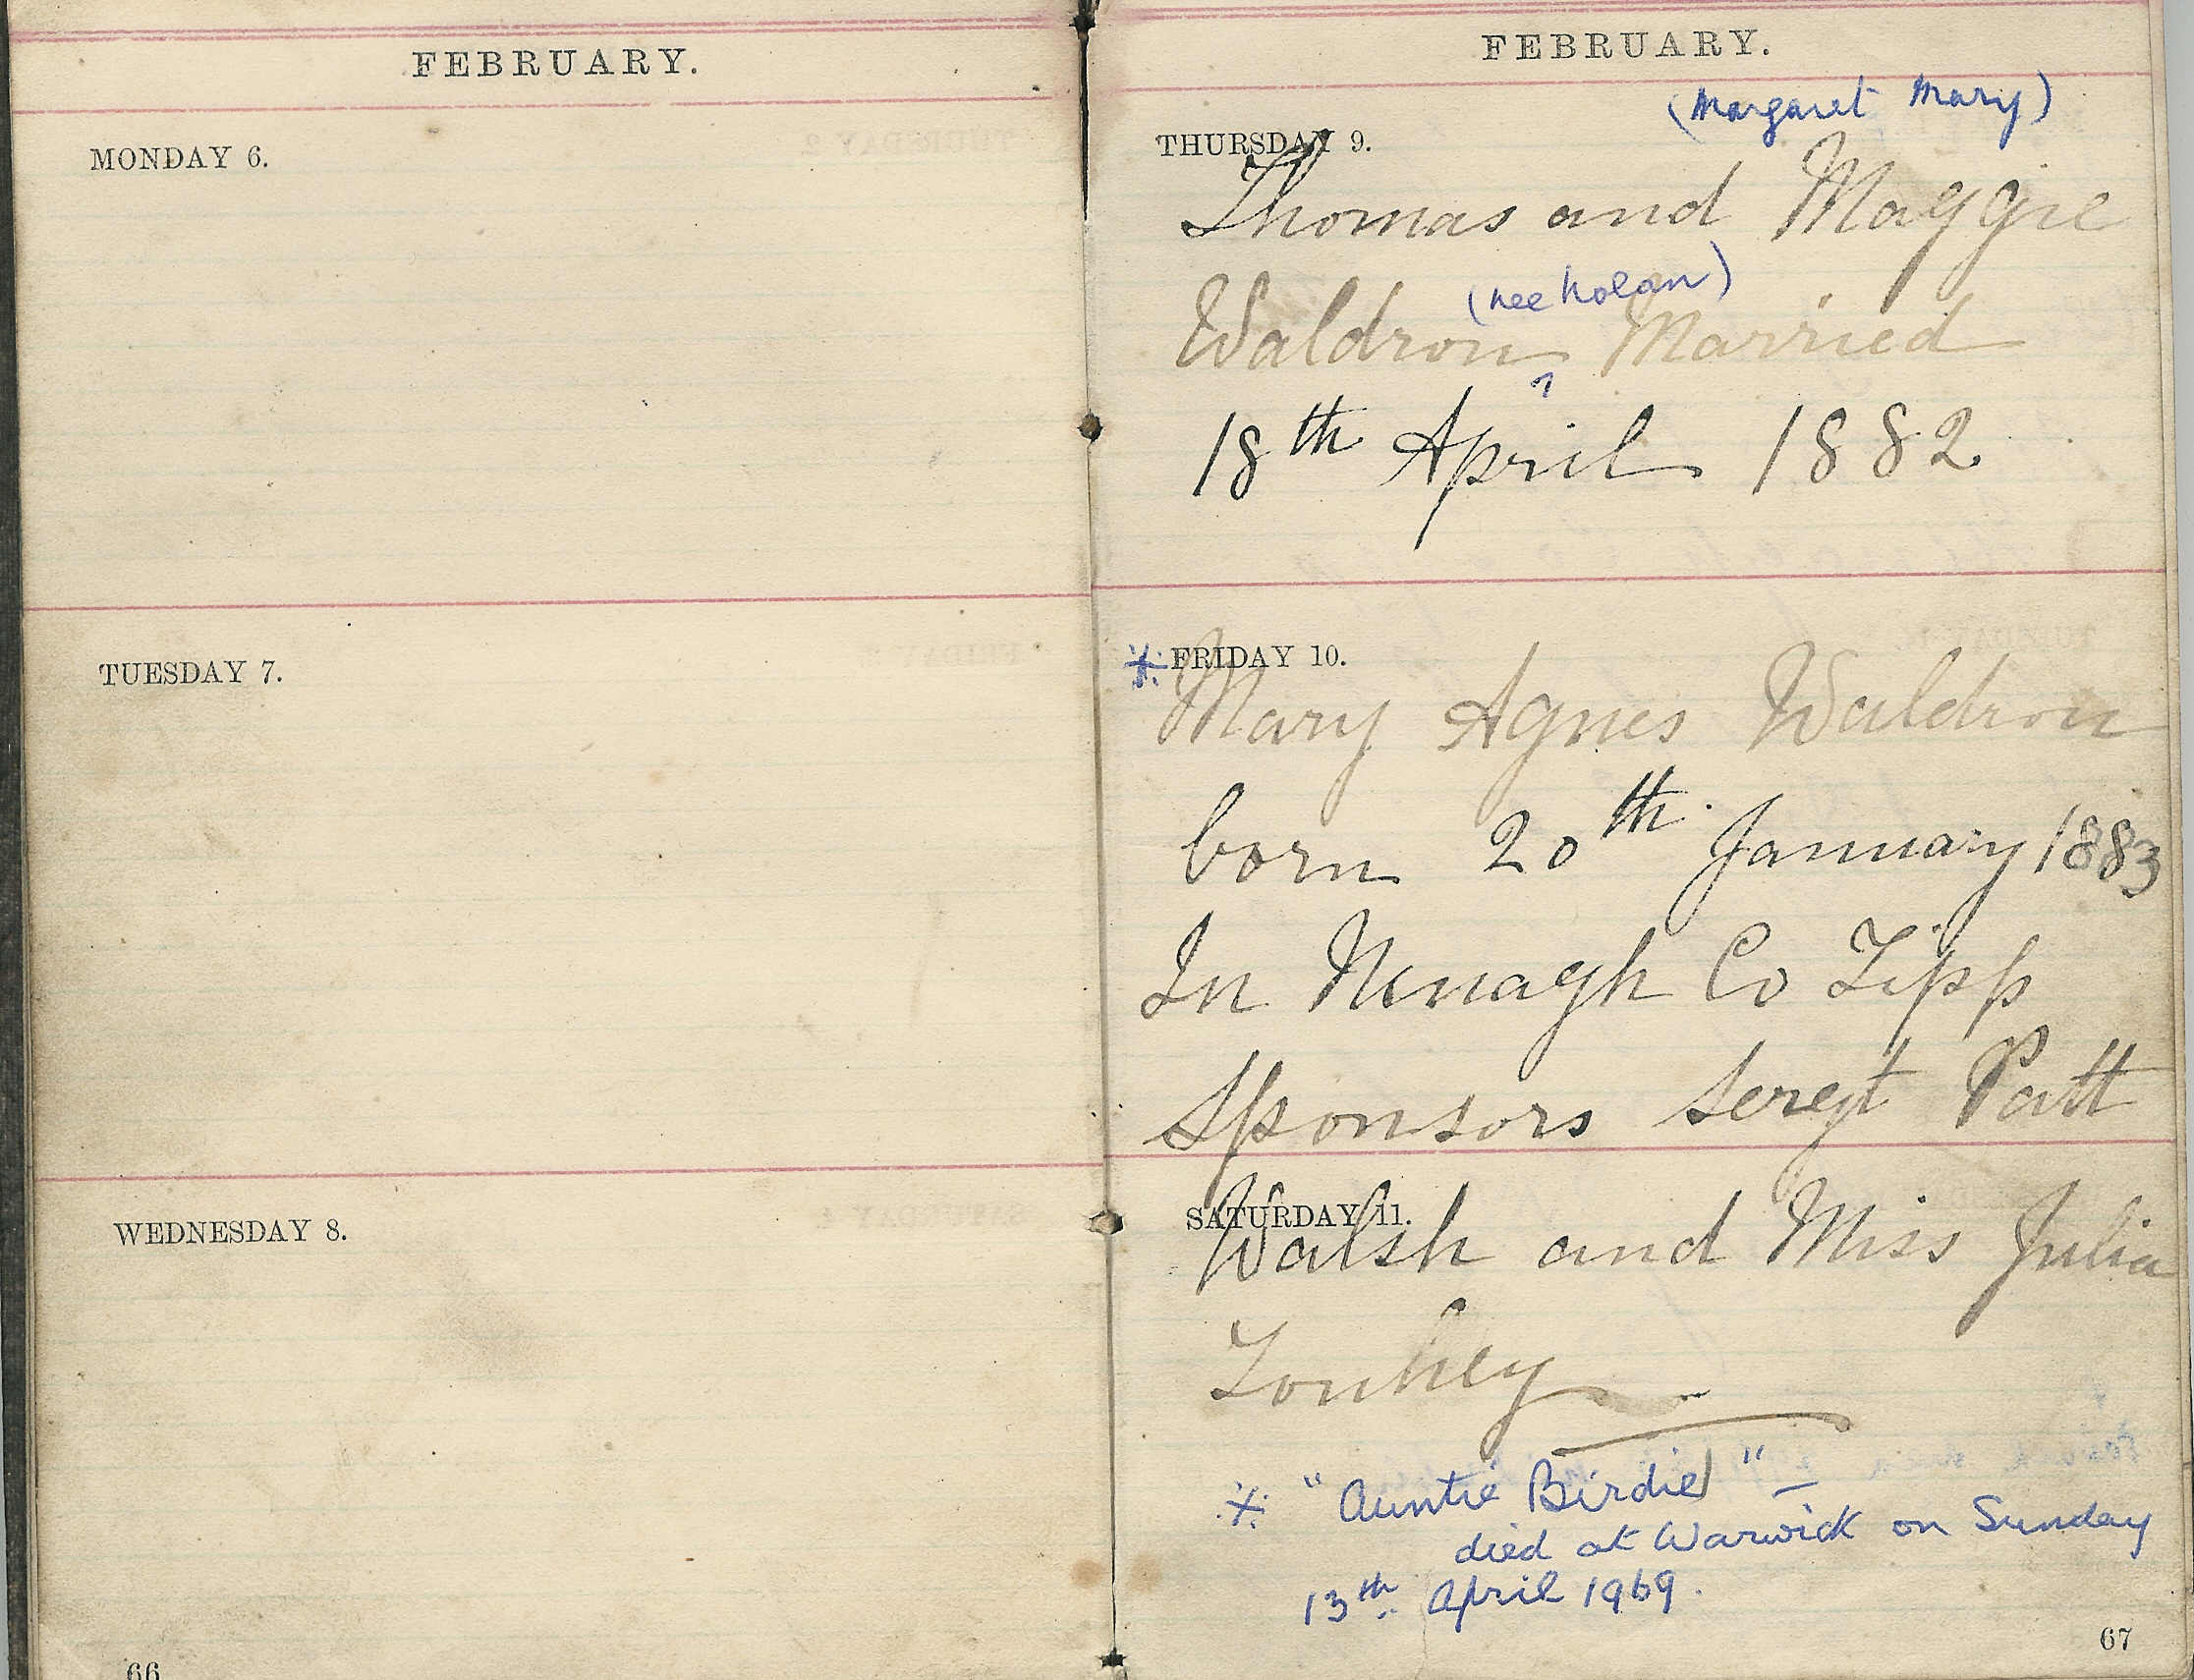 FEBRUARY.
MONDAY 6.
TUESDAY 7.
WEDNESDAY 8.
66
FEBRUARY.
(Margaret Mary)
THURSDAY 9.
Thomas and Maggie
(nee Nolan)
Waldron Married
18th April 1882
※ FRIDAY 10.
Mary Agnes Waldron
born 20th January 1883
In Nenagh Co Tipp
Sponsors Sergt Patt
SATURDAY 11.
Walsh and Miss Julia
Touhey
※ "Auntie Birdie" –
died at Warwick on Sunday
13th April 1969.
67